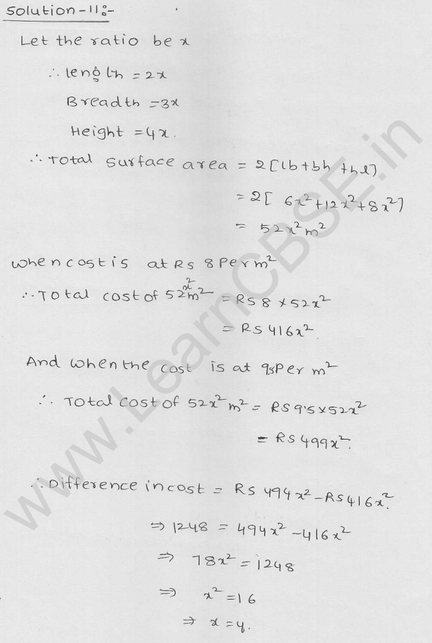 Solution-11:-
Let the ratio be x
∴ length = 2x
Breadth = 3x
Height = 4x.
∴ Total surface area = 2[lb+bh+hl]
= 2[6x²+12x²+8x²]
= 52x²m²
When cost is at Rs 8 Per m²
∴ Total cost of 52x²m² = Rs 8 × 52x²
= Rs 416x².
And when the cost is at 9.5 Per m²
∴ Total cost of 52x²m² = Rs 9.5×52x²
= Rs 499x².
∴ Difference in cost = Rs 494x² - Rs 416x².
⇒ 1248 = 494x² - 416x²
⇒ 78x² = 1248
⇒ x² = 16
⇒ x = 4.
www.LearnCBSE.in